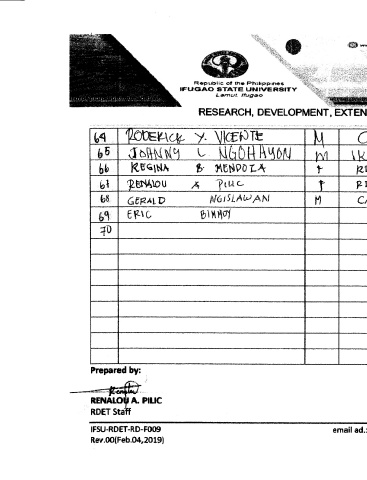 Republic of the Philippines
IFUGAO STATE UNIVERSITY
Lamut, Ifugao
RESEARCH, DEVELOPMENT, EXTEN
64 RODERICK Y. VICENTE M C
65 JOHNNY L NGOHAYON M IK
66 REGINA B MENDOZA F RI
67 RENALOU A PILIC F RI
68 GERALD NGISLAWAN M CA
69 ERIC BIMMOY
70
Prepared by:
RENALOU A. PILIC
RDET Staff
IFSU-RDET-RD-F009 email ad.:
Rev.00(Feb.04,2019)